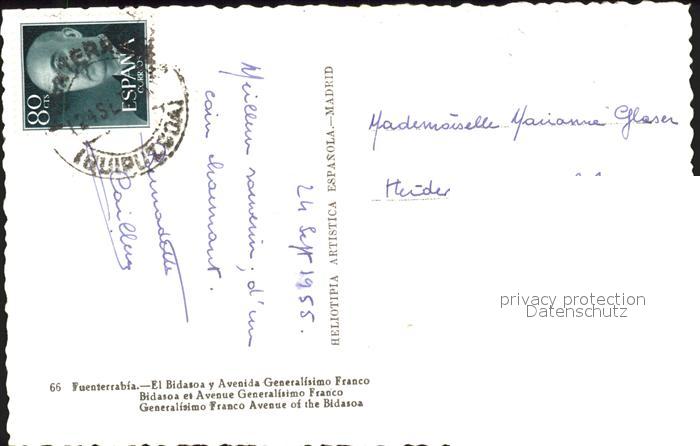 80
CTS
ESPAÑA
CORREOS
(GUIPUZCOA)
Meilleur souvenir; d'un
coin charmant.
24 Sept 1955.
Bernadette
HELIOTIPIA ARTISTICA ESPAÑOLA.—MADRID
Mademoiselle Marianne Glaser
Heider
privacy protection
Datenschutz
66 Fuenterrabía.—El Bidasoa y Avenida Generalísimo Franco
Bidasoa et Avenue Generalísimo Franco
Generalísimo Franco Avenue of the Bidasoa